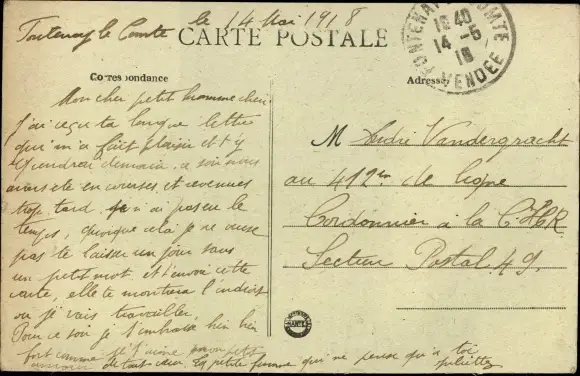 Fontenay le Comte le 14 Mai 1918
CARTE POSTALE
Correspondance
Adresse
FONTENAY COMTE
18 40
14 -5
18
VENDEE
Mon cher petit homme cheri
J'ai reçu ta longue lettre
qui m'a fait plaisir et t'y
repondrai demain, ce soir nous
avons été en courses et revenues
trop tard je n'ai pas eu le
temps, quoique cela je ne veux
pas te laisser un jour sans
un petit mot et t'envoie cette
carte, elle te montrera l'endroit
ou je vais travailler.
Pour ce soir je t'embrasse bien bien
fort comme je t'aime mon petit
de tout cœur. Ta petite femme qui ne pense qu'a toi
Juliette
M André Vandergracht
au 412e de ligne
Cordonnier à la C.H.R
Secteur Postal 49.
NANTES